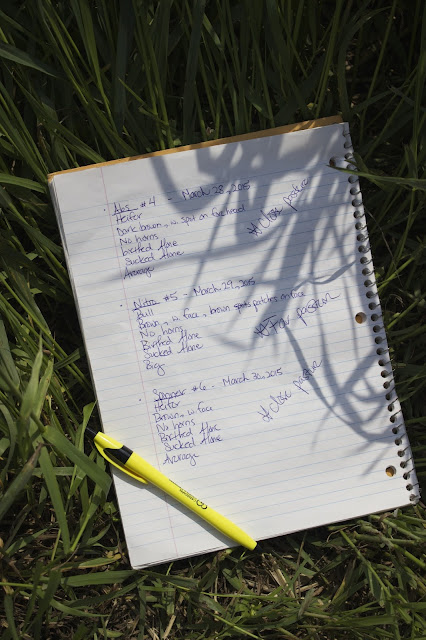 Abs #4 - March 28, 2015
Heifer
Dark brown, w. spot on forehead
No horns
Birthed Alone
Sucked Alone
Average
*Close pasture
Nitro #5 - March 29, 2015
Bull
Brown, w. face, brown spots patches on face
No horns
Birthed Alone
Sucked Alone
Big
*Far pasture
#6 - March 30, 2015
Heifer
Brown, w. face
No horns
Birthed Alone
Sucked Alone
Average
*Close pasture